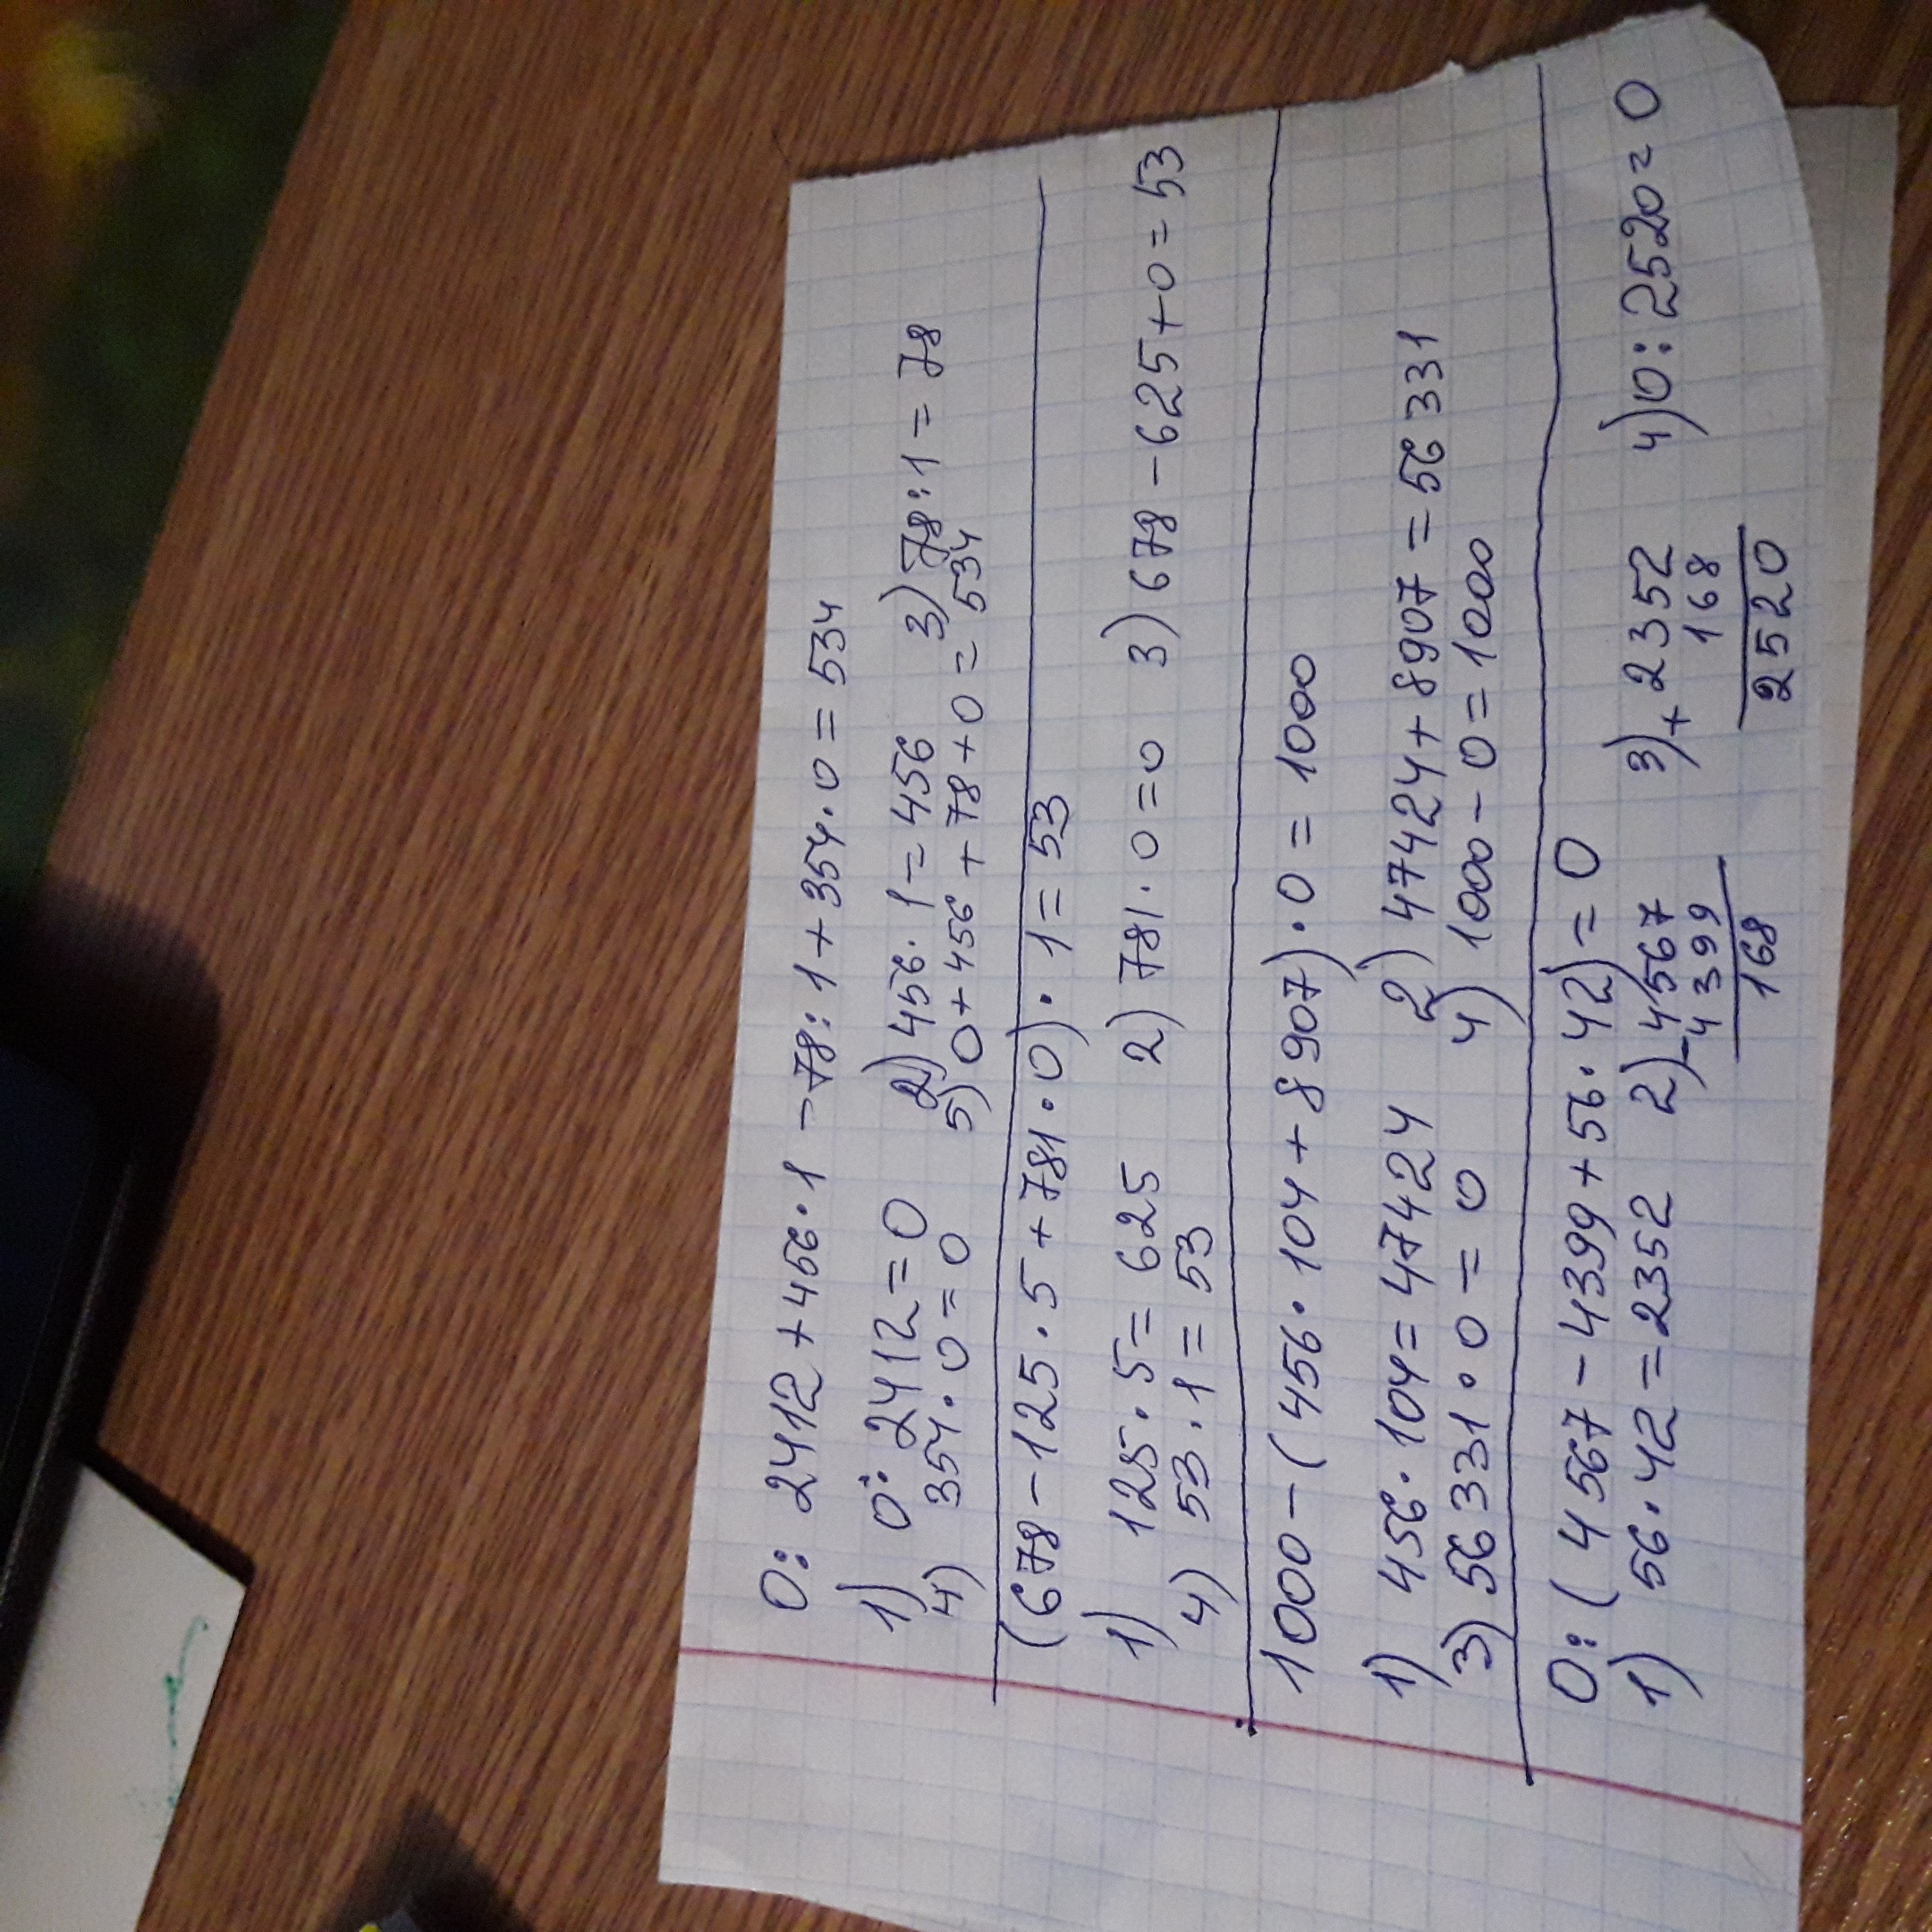 0: 2412+456·1 -78:1+354·0=534
1) 0:2412=0 2) 456·1=456 3) 78:1=78
4) 354·0=0 5) 0+456+78+0=534
(678-125·5+781·0)·1=53
1) 125·5=625 2) 781·0=0 3) 678-625+0=53
4) 53·1=53
1000-(456·104+8907)·0=1000
1) 456·104=47424 2) 47424+8907=56331
3) 56331·0=0 4) 1000-0=1000
0:(4567-4399+56·42)=0
1) 56·42=2352 2) -4567 3) +2352 4) 0:2520=0
4399 168
168 2520